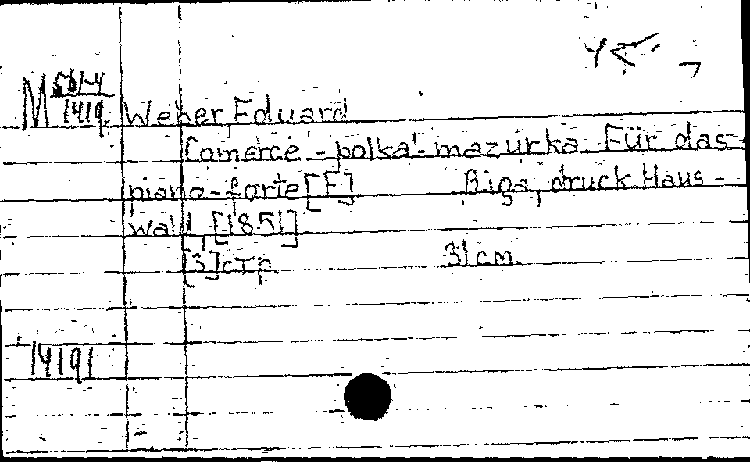 M 561-4
1419. Weber Eduard
Comerce - polka - mazurka. Für das
piano-forte [F] Riga, druck Haus-
wald, [1851]
[3] стр. 31 см.
14191